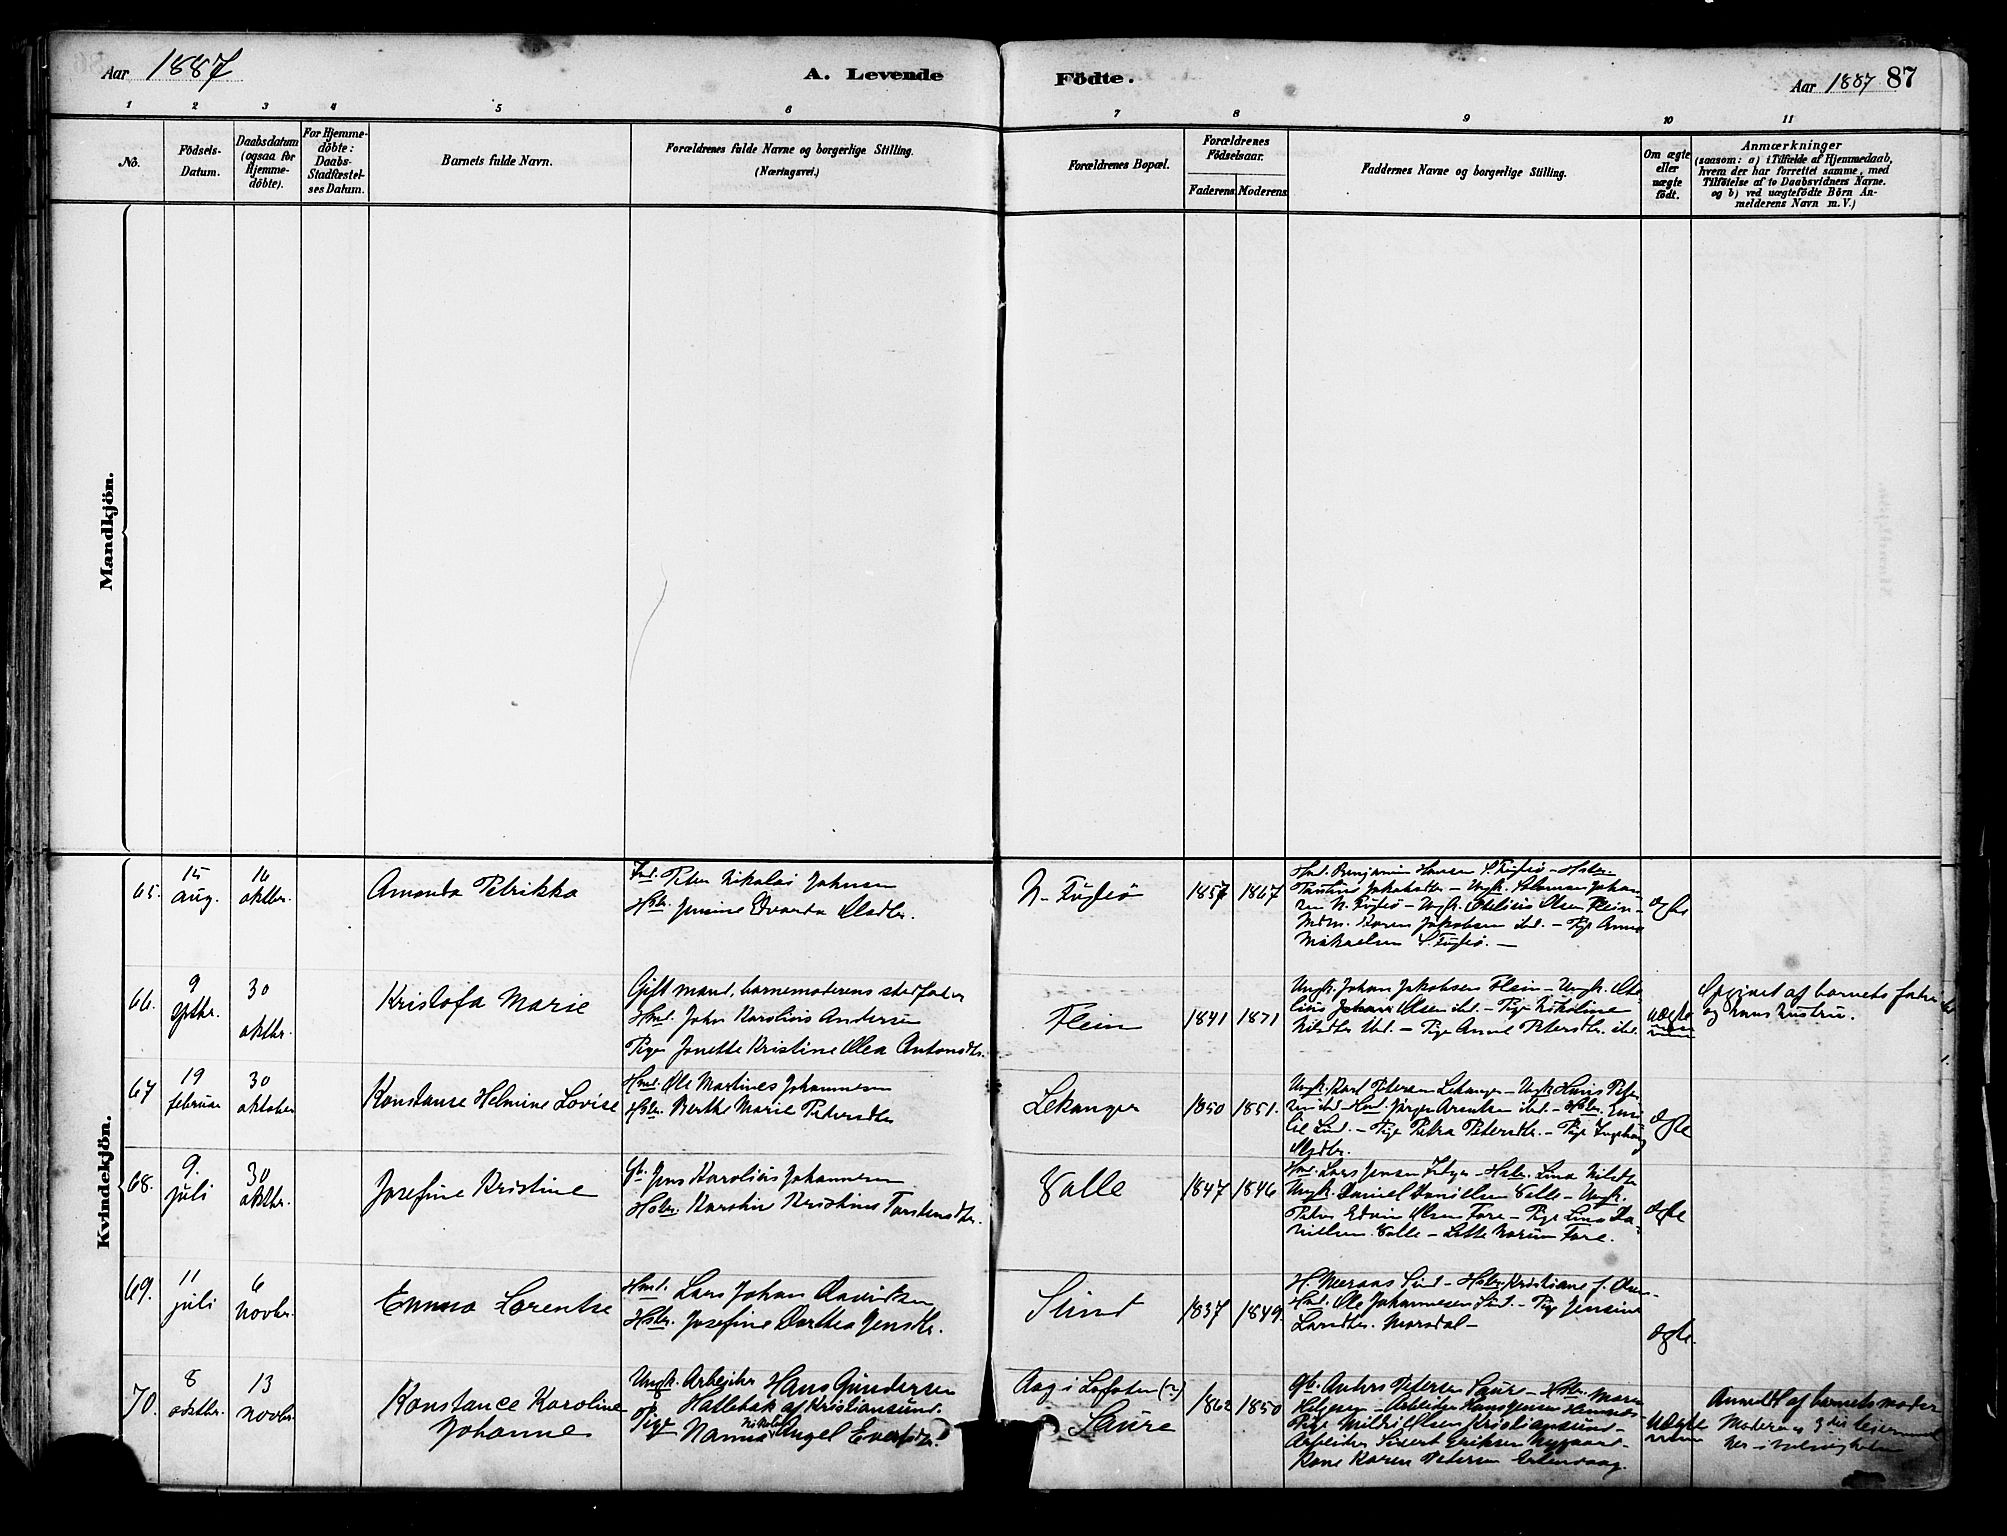 Aar 1887
A. Levende Födte.
Aar 1887 87
1 2 3 4 5 6 7 8 9 10 11
No.
Födsels-
Datum.
Daabsdatum
(ogsaa for
Hjemme-
döbte).
For Hjemme-
döbte:
Daabs-
Stadfæstel-
ses Datum.
Barnets fulde Navn.
Forældrenes fulde Navne og borgerlige Stilling.
(Næringsvei.)
Forældrenes Bopæl.
Forældrenes
Födselsaar.
Faderens. Moderens.
Faddernes Navne og borgerlige Stilling.
Om ægte
eller
uægte
født.
Anmærkninger
(saasom: a) i Tilfælde af Hjemmedaab,
hvem der har forrettet samme, med
Tilföielse af to Daabsvidners Navne.
og b) ved uægtefödte Börn An-
melderens Navn m. V.)
Mandkjön.
Kvindekjön.
65.
15
aug.
16
oktbr.
Amanda Petrikka
Ind. Peter Nikolai Johnsen
Hstr. Jensine Edvarda Olsdtr.
N. Fugleö
1857 1867
Hmd. Benjamin Hansen S. Fugleö – Hstr.
Jakobsdtr – Ungk. Johan-
sen N. Fugleö – Ungk. Olsen Flein –
Karen Jakobsen ibd. – Pige Anna
Mikaelsen S. Fugleö. –
ægte
66.
9
septbr.
30
oktbr.
Kristofa Marie
Gift mand, barnemoderens stedfader
Hmd. John Karolius Andersen
Pige Jonette Kristine Olea Antonsdtr.
Flein
1841 1871
Ungk. Johan Jakobsen Flein – Ungk. Ote-
lius Johan Olsen ibd. – Pige Nikoline
Nilsdtr ibd. – Pige Anne Petersdtr. ibd.
uægte
af barnets fader
og hans hustru.
67
19
februar
30
oktober
Konstanse Helmine Lovise
Hmd. Ole Martines Johannesen
Hstr. Berthe Marie Petersdtr
Lekanger
1850 1851.
Ungk. Karl Petersen Lekanger – Ungk. Hans Peter-
sen ibd – Hmd. Jörgen Arentsen ibd. – Hstr.
ibd. – Pige Petra Petersdtr. – Pige Ingeborg
Olsdtr.
ægte
68.
9.
juli
30
oktbr.
Josefine Kristine
Gb. Jens Karolius Johannesen
Hstr. Karolin Kristine Torstensdtr.
Valle
1847 1846
Hmd. Lars Jensen – Hstr. Lina Nilsdtr
Ungk. Daniel Danielsen Valle – Ungk.
Peter Edvin Olsen Fore – Pige Lina Da-
nielsen Valle – Lette Norum Fore.
ægte
69.
11
juli
6
novbr.
Emma Lorentse
Hmd. Lars Johan Davidsen
Hstr. Josefine Dorthea Jensdtr.
Sund
1837 1849.
H. Meraas Sund – Hstr. Kristiane f. Olsen –
Hmd. Ole Johannesen Sund. – Pige Jensine
Larsdtr. Morsdal –
ægte.
70.
8
oktbr.
13
novbr.
Konstance Karoline
Johanne
Ungk. Arbejder Hans Gundersen
Hallebak af Kristiansund.
Pige Nanna Nikoline Angel Evertsdtr.
Aag i Lofoten (?)
Saure
1862 1850
Gb. Anders Petersen Saure – Hstr. Maren
– Arbejder Hans Jensen
Pige Olsen Kristiansund –
Arbeider Sivert Eriksen Nygaard –
Kone Karen Petersen
uægte
Anmeldt af barnets moder
Moderens 3die leiermaal